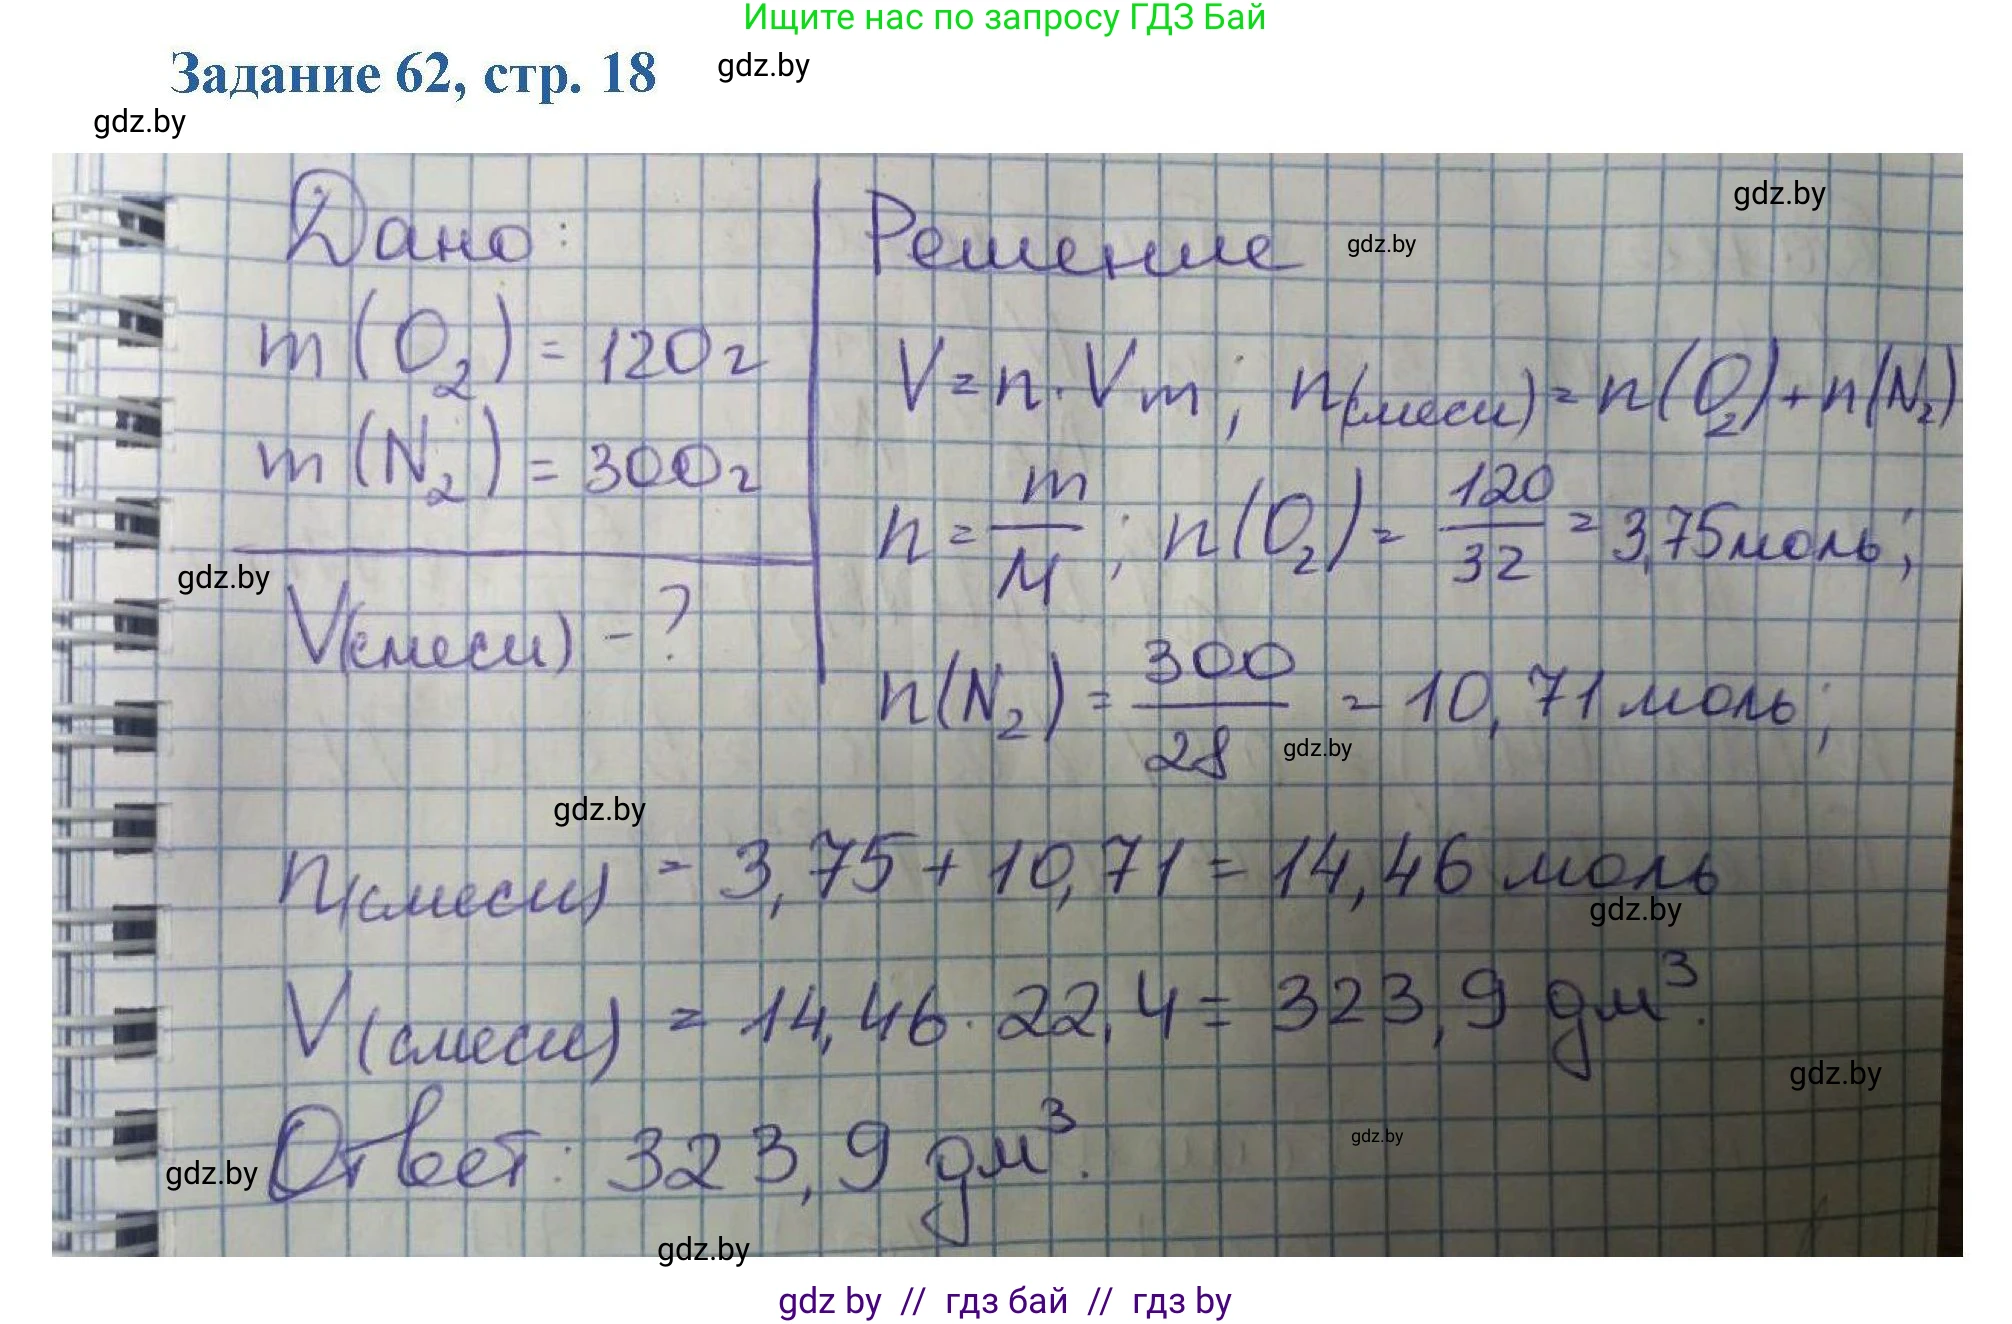 Ищите нас по запросу ГДЗ Бай
Задание 62, стр. 18
gdz.by
gdz.by
gdz.by
Дано:
Решение
gdz.by
m(O₂) = 120г
V = n · Vm; n(смеси) = n(O₂) + n(N₂)
m(N₂) = 300г
n = m/M; n(O₂) = 120/32 = 3,75 моль;
gdz.by
V(смеси) - ?
n(N₂) = 300/28 = 10,71 моль;
gdz.by
gdz.by
n(смеси) = 3,75 + 10,71 = 14,46 моль
gdz.by
V(смеси) = 14,46 · 22,4 = 323,9 дм³.
gdz.by
Ответ: 323,9 дм³.
gdz.by
gdz.by
gdz.by
gdz by // гдз бай // гдз by